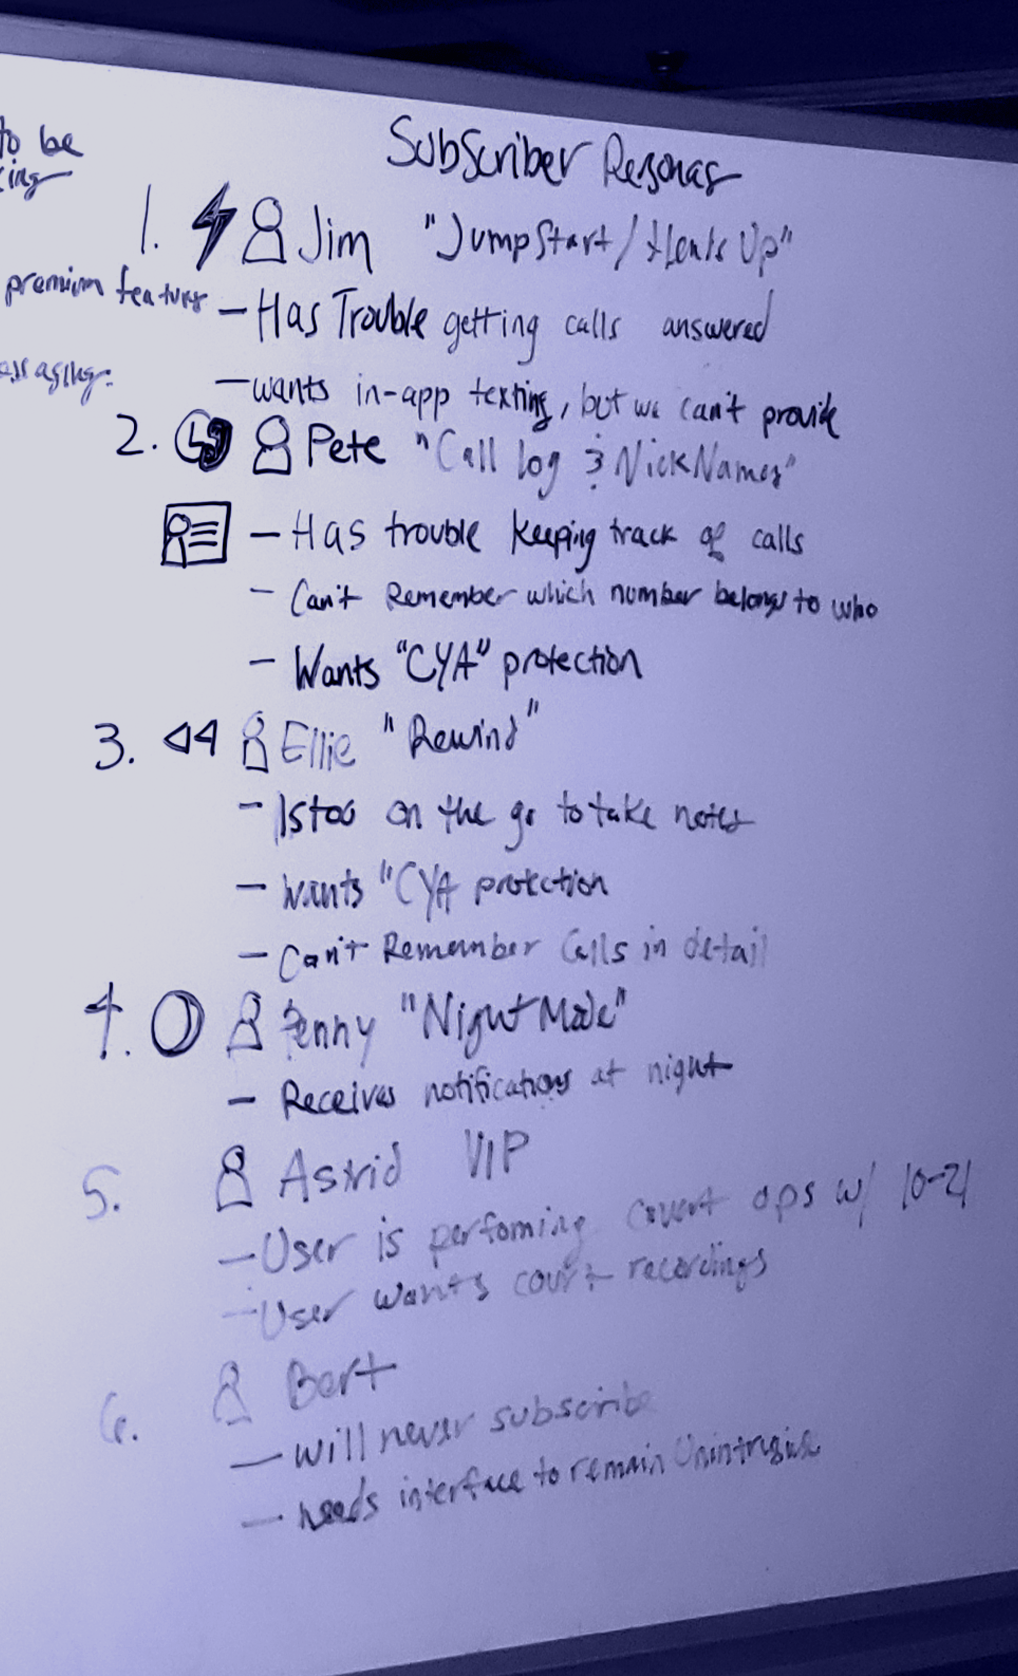 to be
Subscriber Personas
1. Jim "JumpStart/Heads Up"
premium features
- Has Trouble getting calls answered
- wants in-app texting, but we can't provide
2. Pete "Call log & NickNames"
- Has trouble keeping track of calls
- Can't Remember which number belongs to who
- Wants "CYA" protection
3. Ellie "Rewind"
- Is too on the go to take notes
- Wants "CYA protection
- Can't Remember Calls in detail
4. Penny "Night Mode"
- Receives notifications at night
5. Astrid VIP
- User is perfoming covert ops w/ 10-21
- User wants court recordings
6. Bert
- will never subscribe
- needs interface to remain